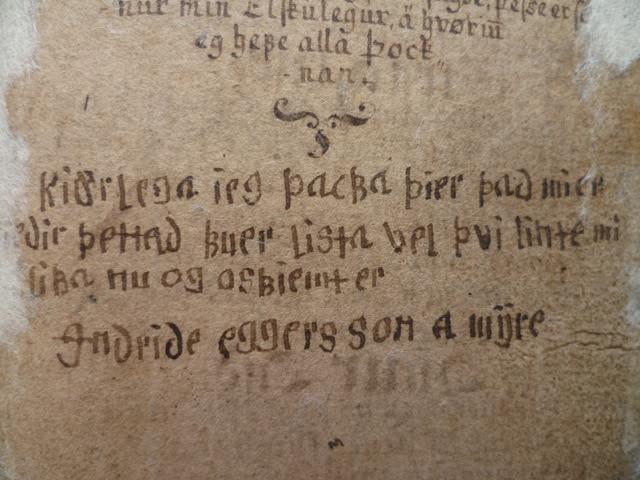 nur min Elskulegur, á hvørm
eg hefe alla Þock
nan.
Kiærlega ieg þacka þier þad mier
þettad kuer lista vel þvi
nu og oskiemter
Jndride eggers son a mÿre